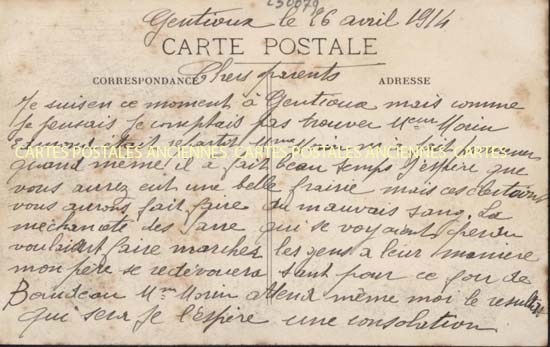 230079
Gentioux le 26 avril 1914
CARTE POSTALE
CORRESPONDANCE ADRESSE
Chers parents
Je suis en ce moment à Gentioux mais comme
Je pensais Je comptais pas trouver Mr Morin
CARTES POSTALES ANCIENNES CARTES POSTALES ANCIENNES
quand même il a fait beau temps J'espère que
vous aurez eut une belle frairie mais ces
vous aurons fait faire du mauvais sang. La
mechanceté des qui se voyant perdu
voulaient faire marcher les gens a leur maniere
mon père se redevouera tant pour ce de
Mme Morin Atend même moi le resultat
qui sera Je l'espère une consolation